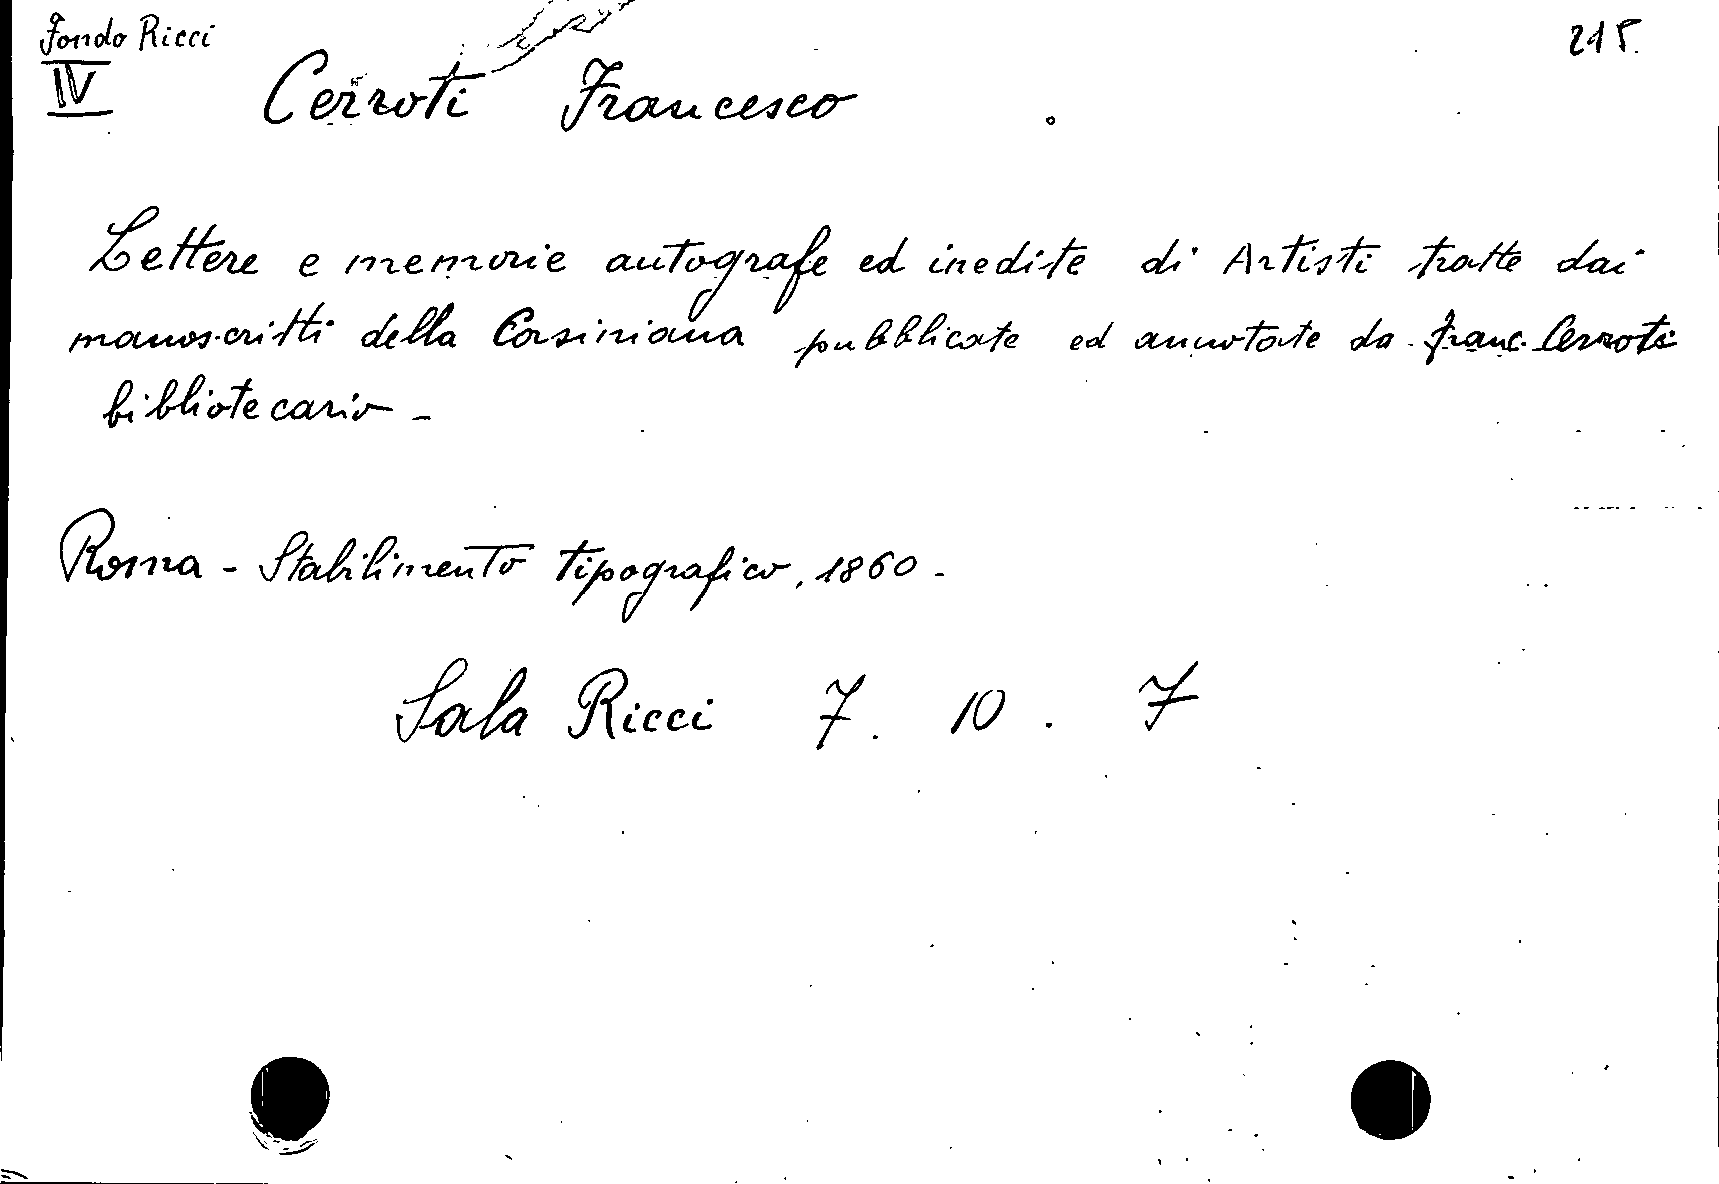 Fondo Ricci 215
IV Cerroti Francesco
Lettere e memorie autografe ed inedite di Artisti tratte dai
manoscritti della Corsiniana pubblicate ed annotate da Franc. Cerroti
bibliotecario -
Roma - Stabilimento tipografico, 1860 -
Sala Ricci 7. 10. 7